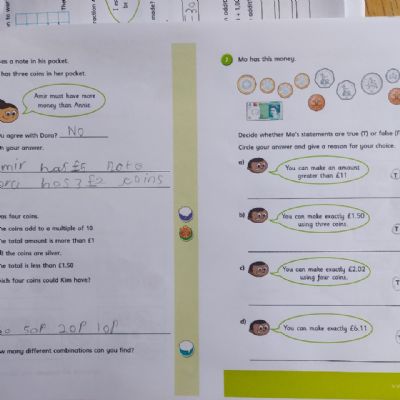 as a note in his pocket.
has three coins in her pocket.
Amir must have more
money than Annie
u agree with Dora? No
your answer.
mir has £5 note
ora has 3 £2 coins
as four coins.
he coins add to a multiple of 10
he total amount is more than £1
the coins are silver.
he total is less than £1.50
hich four coins could Kim have?
50P 20P 10P
w many different combinations can you find?
Mo has this money.
Decide whether Mo's statements are true (T) or false (F
Circle your answer and give a reason for your choice.
a)
You can make an amount
greater than £11
T
b)
You can make exactly £1.50
using three coins.
T
c)
You can make exactly £2.02
using four coins.
T
d)
You can make exactly £6.11
T